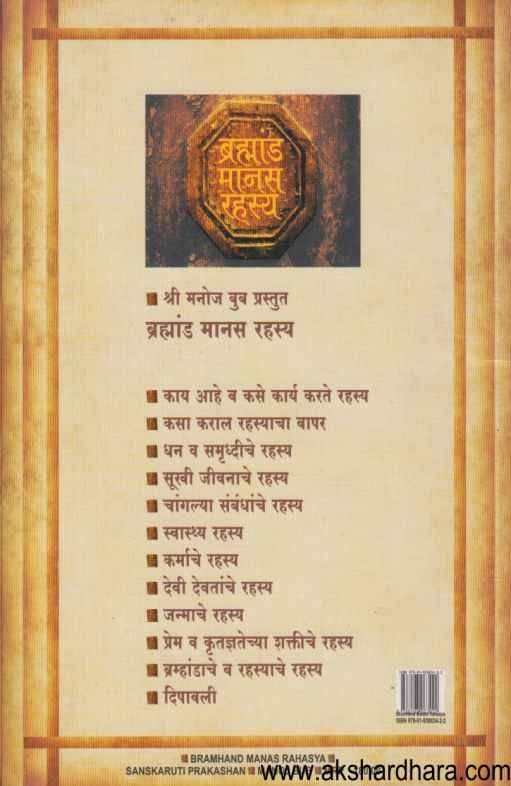 ब्रह्मांड
मानस
रहस्य
श्री मनोज बुब प्रस्तुत
ब्रह्मांड मानस रहस्य
काय आहे व कसे कार्य करते रहस्य
कसा कराल रहस्याचा वापर
धन व समृध्दीचे रहस्य
सूखी जीवनाचे रहस्य
चांगल्या संबंधांचे रहस्य
स्वास्थ्य रहस्य
कर्माचे रहस्य
देवी देवतांचे रहस्य
जन्माचे रहस्य
प्रेम व कृतज्ञतेच्या शक्तीचे रहस्य
ब्रम्हांडाचे व रहस्याचे रहस्य
दिपावली
BRAMHAND MANAS RAHASYA
SANSKARUTI PRAKASHAN
www.akshardhara.com